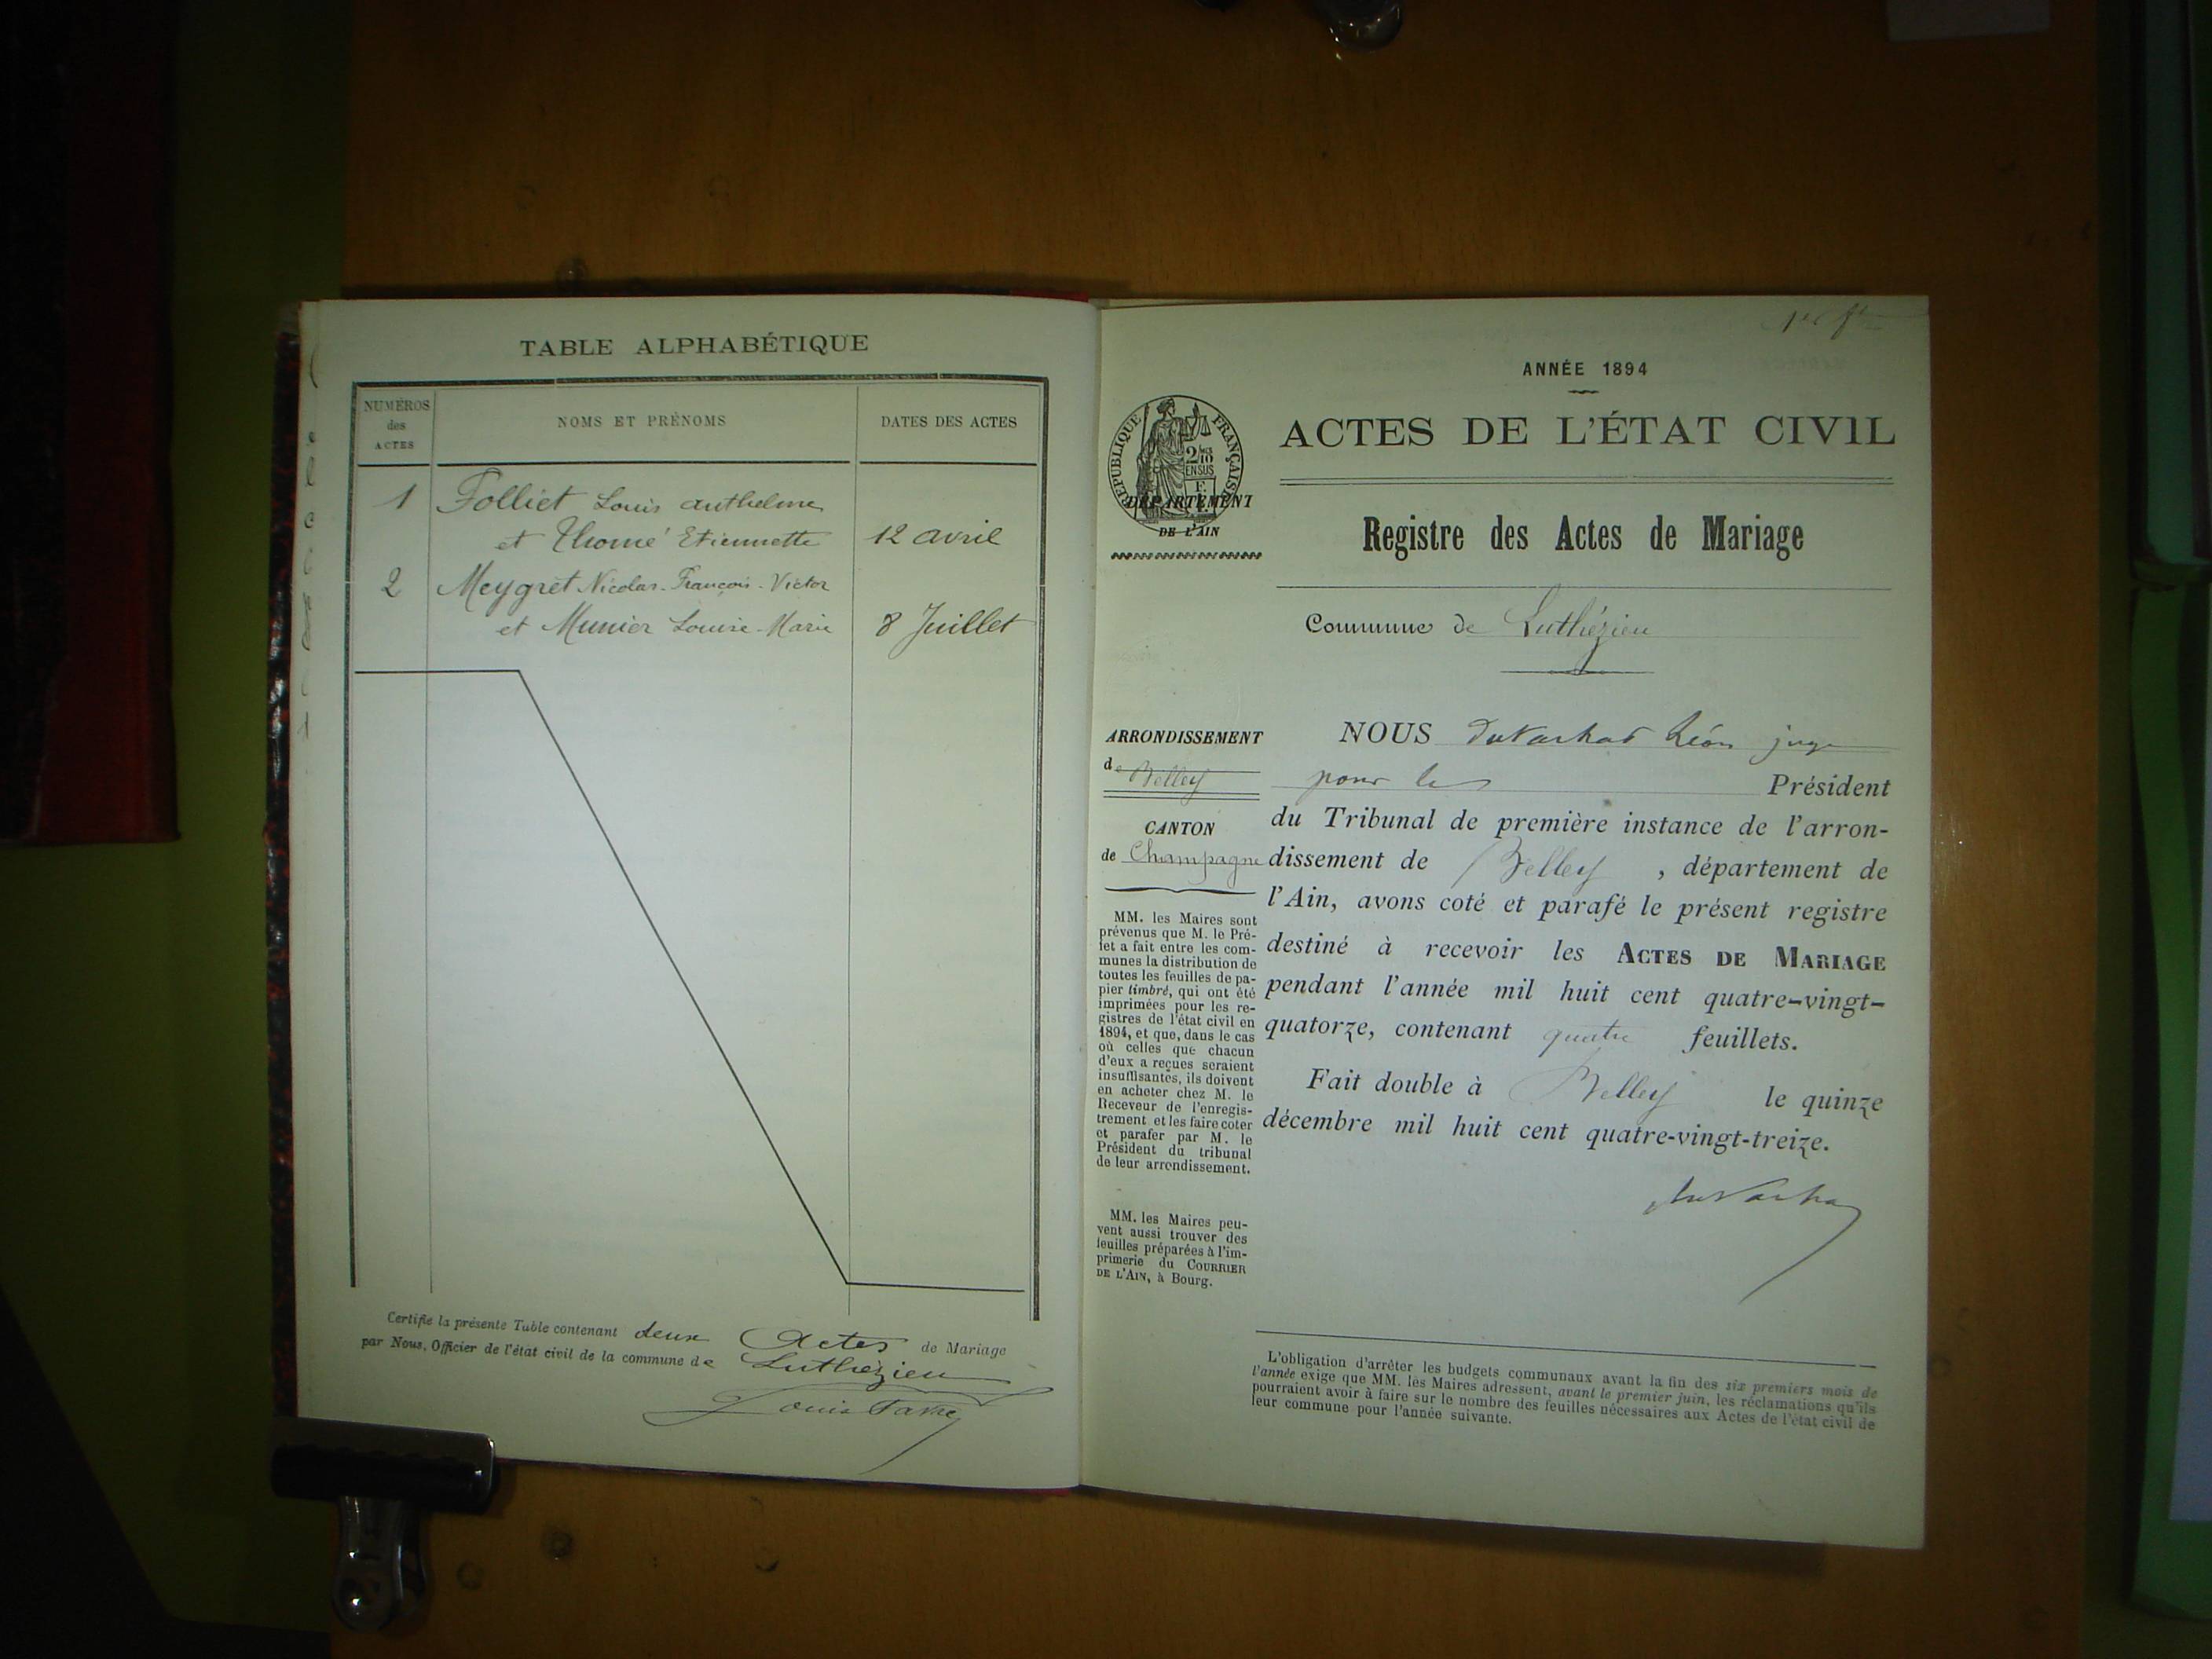 TABLE ALPHABÉTIQUE
NUMÉROS
des
ACTES
NOMS ET PRÉNOMS
DATES DES ACTES
1 Folliet Louis Anthelme
et Thomé Etiennette 12 avril
2 Meygret Nicolas-François-Victor
et Munier Louise-Marie 8 Juillet
Certifié la présente Table contenant deux Actes de Mariage
par Nous, Officier de l'état civil de la commune de Luthézieu
Louis
ANNÉE 1894
ACTES DE L'ÉTAT CIVIL
RÉPUBLIQUE FRANÇAISE
2/10
EN SUS
DÉPARTEMENT
DE L'AIN
Registre des Actes de Mariage
Commune de Luthézieu
ARRONDISSEMENT
de Belley
CANTON
de Champagne
MM. les Maires sont
prévenus que M. le Pré-
fet a fait entre les com-
munes la distribution de
toutes les feuilles de pa-
pier timbré, qui ont été
imprimées pour les re-
gistres de l'état civil en
1894, et que, dans le cas
où celles que chacun
d'eux a reçues seraient
insuffisantes, ils doivent
en acheter chez M. le
Receveur de l'enregis-
trement et les faire coter
et parafer par M. le
Président du tribunal
de leur arrondissement.
MM. les Maires peu-
vent aussi trouver des
feuilles préparées à l'im-
primerie du COURRIER
DE L'AIN, à Bourg.
NOUS Léon juge
pour le Président
du Tribunal de première instance de l'arron-
dissement de Belley, département de
l'Ain, avons coté et parafé le présent registre
destiné à recevoir les ACTES DE MARIAGE
pendant l'année mil huit cent quatre-vingt-
quatorze, contenant quatre feuillets.
Fait double à Belley le quinze
décembre mil huit cent quatre-vingt-treize.
L'obligation d'arrêter les budgets communaux avant la fin des six premiers mois de
l'année exige que MM. les Maires adressent, avant le premier juin, les réclamations qu'ils
pourraient avoir à faire sur le nombre des feuilles nécessaires aux Actes de l'état civil de
leur commune pour l'année suivante.